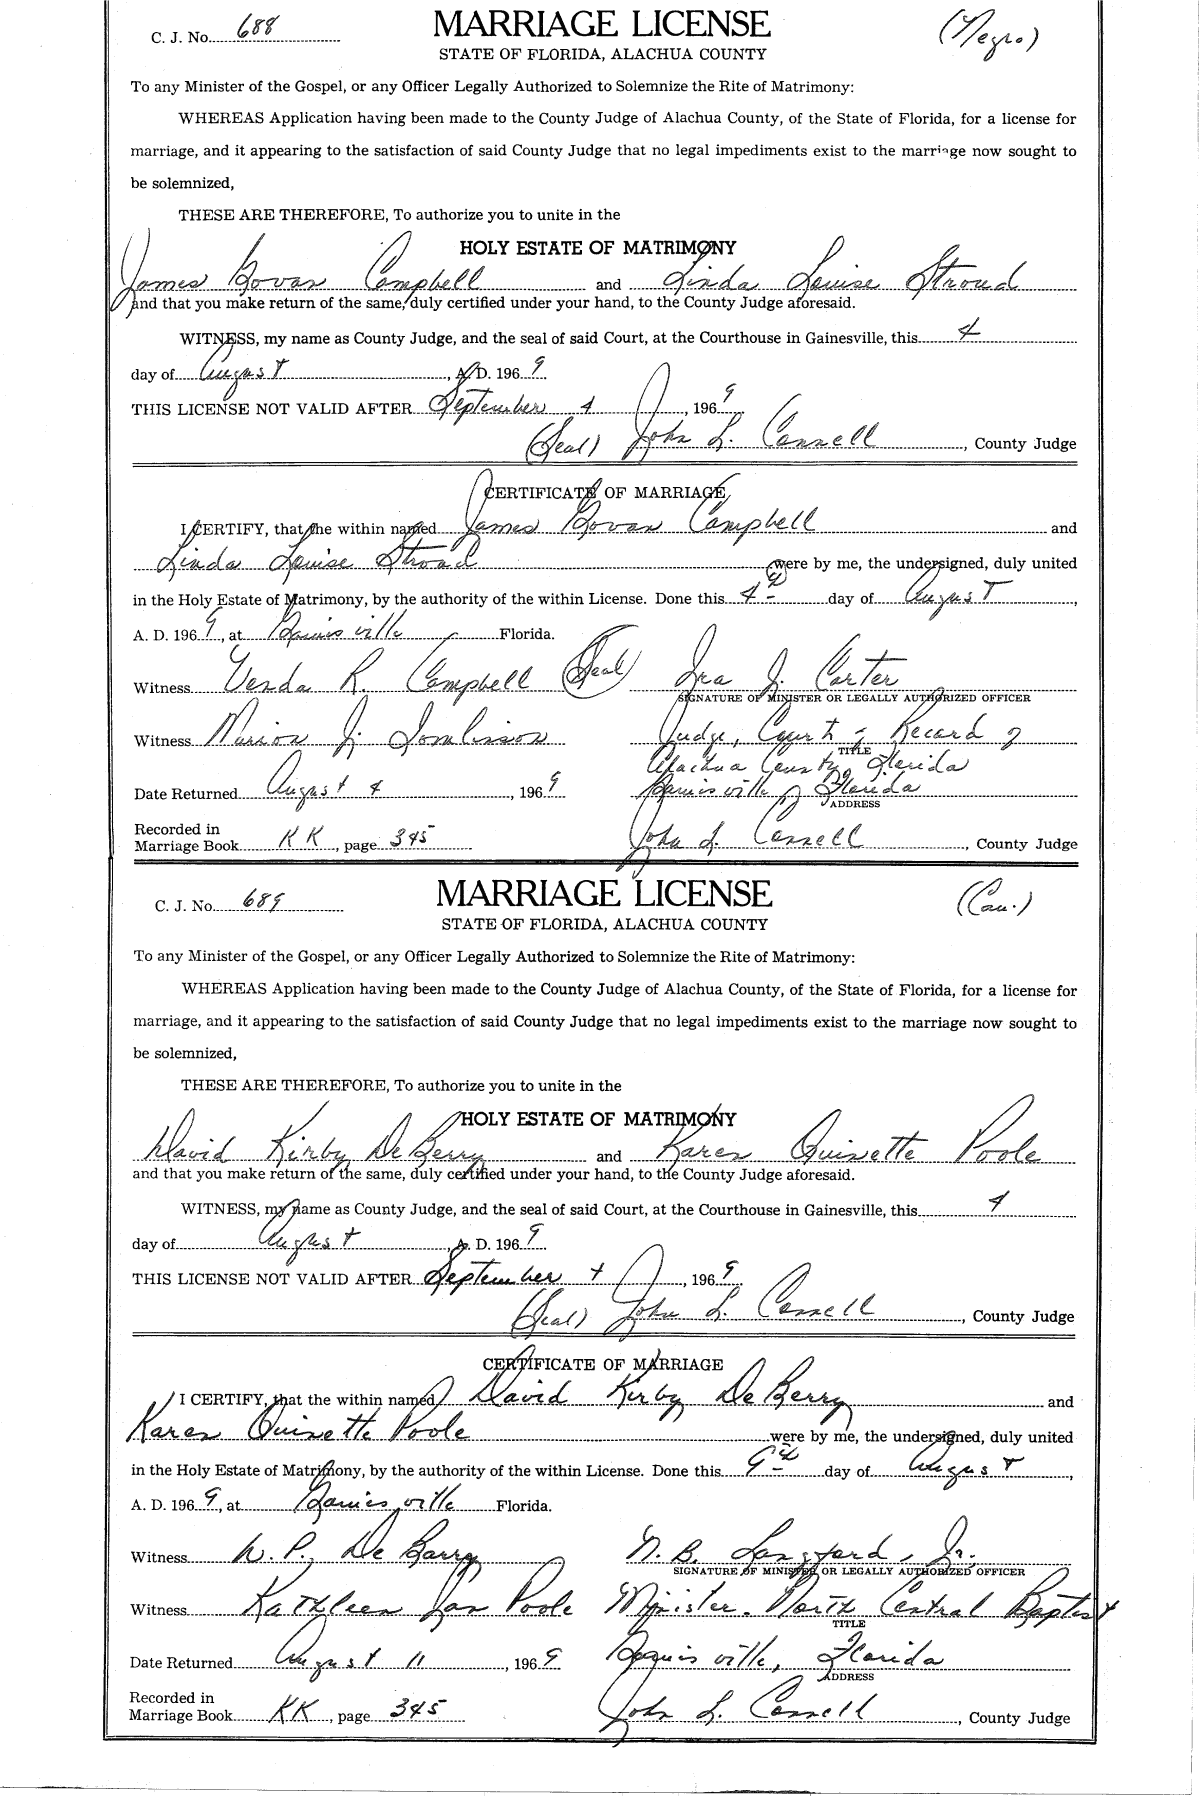 C. J. No. 688 MARRIAGE LICENSE (Negro)
STATE OF FLORIDA, ALACHUA COUNTY
To any Minister of the Gospel, or any Officer Legally Authorized to Solemnize the Rite of Matrimony:
WHEREAS Application having been made to the County Judge of Alachua County, of the State of Florida, for a license for
marriage, and it appearing to the satisfaction of said County Judge that no legal impediments exist to the marriage now sought to
be solemnized,
THESE ARE THEREFORE, To authorize you to unite in the
HOLY ESTATE OF MATRIMONY
James Govan Campbell and Linda Louise Stroud
and that you make return of the same, duly certified under your hand, to the County Judge aforesaid.
WITNESS, my name as County Judge, and the seal of said Court, at the Courthouse in Gainesville, this 4
day of August, A. D. 1969
THIS LICENSE NOT VALID AFTER September 4, 1969
(Seal) John L. Connell, County Judge
CERTIFICATE OF MARRIAGE
I CERTIFY, that the within named James Govan Campbell and
Linda Louise Stroud were by me, the undersigned, duly united
in the Holy Estate of Matrimony, by the authority of the within License. Done this 4th day of August,
A. D. 1969, at Gainesville Florida.
Witness R. Campbell (Seal) Ira J. Carter
SIGNATURE OF MINISTER OR LEGALLY AUTHORIZED OFFICER
Witness Marion J. Tomlinson Judge, Court of Record of
TITLE
Alachua County, Florida
Date Returned August 4, 1969 Gainesville, Florida
ADDRESS
Recorded in
Marriage Book KK, page 345 John L. Connell, County Judge
C. J. No. 689 MARRIAGE LICENSE (Cau.)
STATE OF FLORIDA, ALACHUA COUNTY
To any Minister of the Gospel, or any Officer Legally Authorized to Solemnize the Rite of Matrimony:
WHEREAS Application having been made to the County Judge of Alachua County, of the State of Florida, for a license for
marriage, and it appearing to the satisfaction of said County Judge that no legal impediments exist to the marriage now sought to
be solemnized,
THESE ARE THEREFORE, To authorize you to unite in the
HOLY ESTATE OF MATRIMONY
David Kirby DeBerry and Karen Quinette Poole
and that you make return of the same, duly certified under your hand, to the County Judge aforesaid.
WITNESS, my name as County Judge, and the seal of said Court, at the Courthouse in Gainesville, this 4
day of August, A. D. 1969
THIS LICENSE NOT VALID AFTER September 4, 1969
(Seal) John L. Connell, County Judge
CERTIFICATE OF MARRIAGE
I CERTIFY, that the within named David Kirby DeBerry and
Karen Quinette Poole were by me, the undersigned, duly united
in the Holy Estate of Matrimony, by the authority of the within License. Done this 9th day of August,
A. D. 1969, at Gainesville Florida.
Witness W. P. DeBerry N. B. Langford, Jr.
SIGNATURE OF MINISTER OR LEGALLY AUTHORIZED OFFICER
Witness Kathleen Jan Poole Minister. North Central Baptist
TITLE
Date Returned August 11, 1969 Gainesville, Florida
ADDRESS
Recorded in
Marriage Book KK, page 345 John L. Connell, County Judge